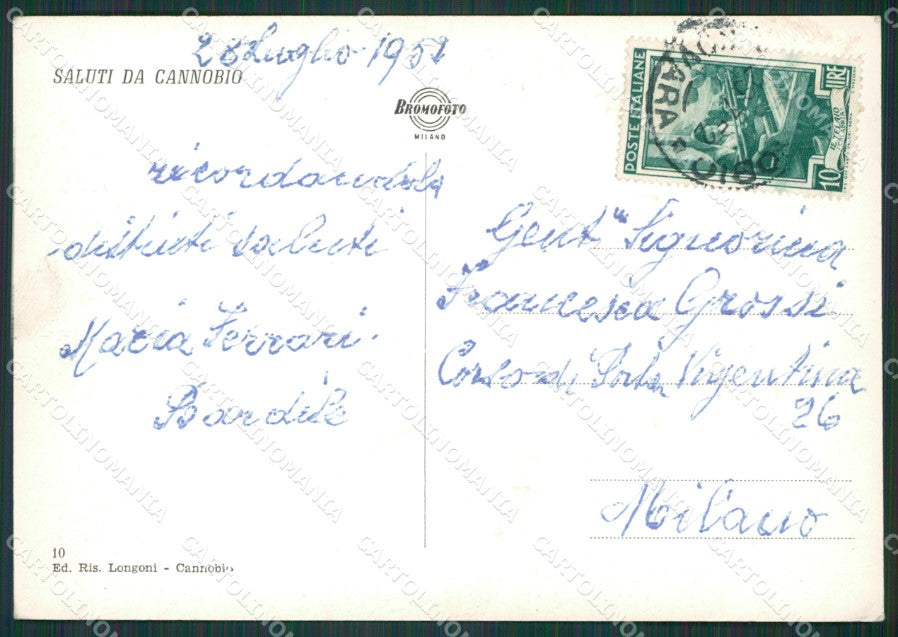 28 Luglio 1951
SALUTI DA CANNOBIO
BROMOFOTO
MILANO
POSTE ITALIANE
LIRE
10
ricordandola
distinti saluti
Maria Ferrari
Gent ma Signorina
Francesca Grossi
Corso di Porta Vigentina
26
Milano
10
Ed. Ris. Longoni - Cannobio
CARTOLINOMANIA